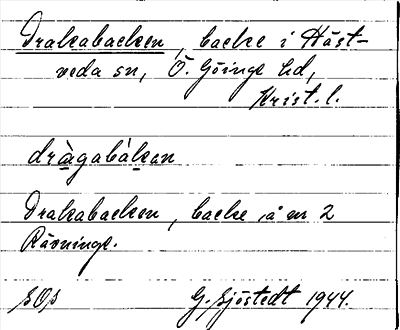 Drakabacken, backe i Häst-
veda sn, Ö. Göinge hd,
Krist. l.
dràgabákan
Drakabacken, backe å nr 2
Rävninge.
SOS G. Sjöstedt 1944.